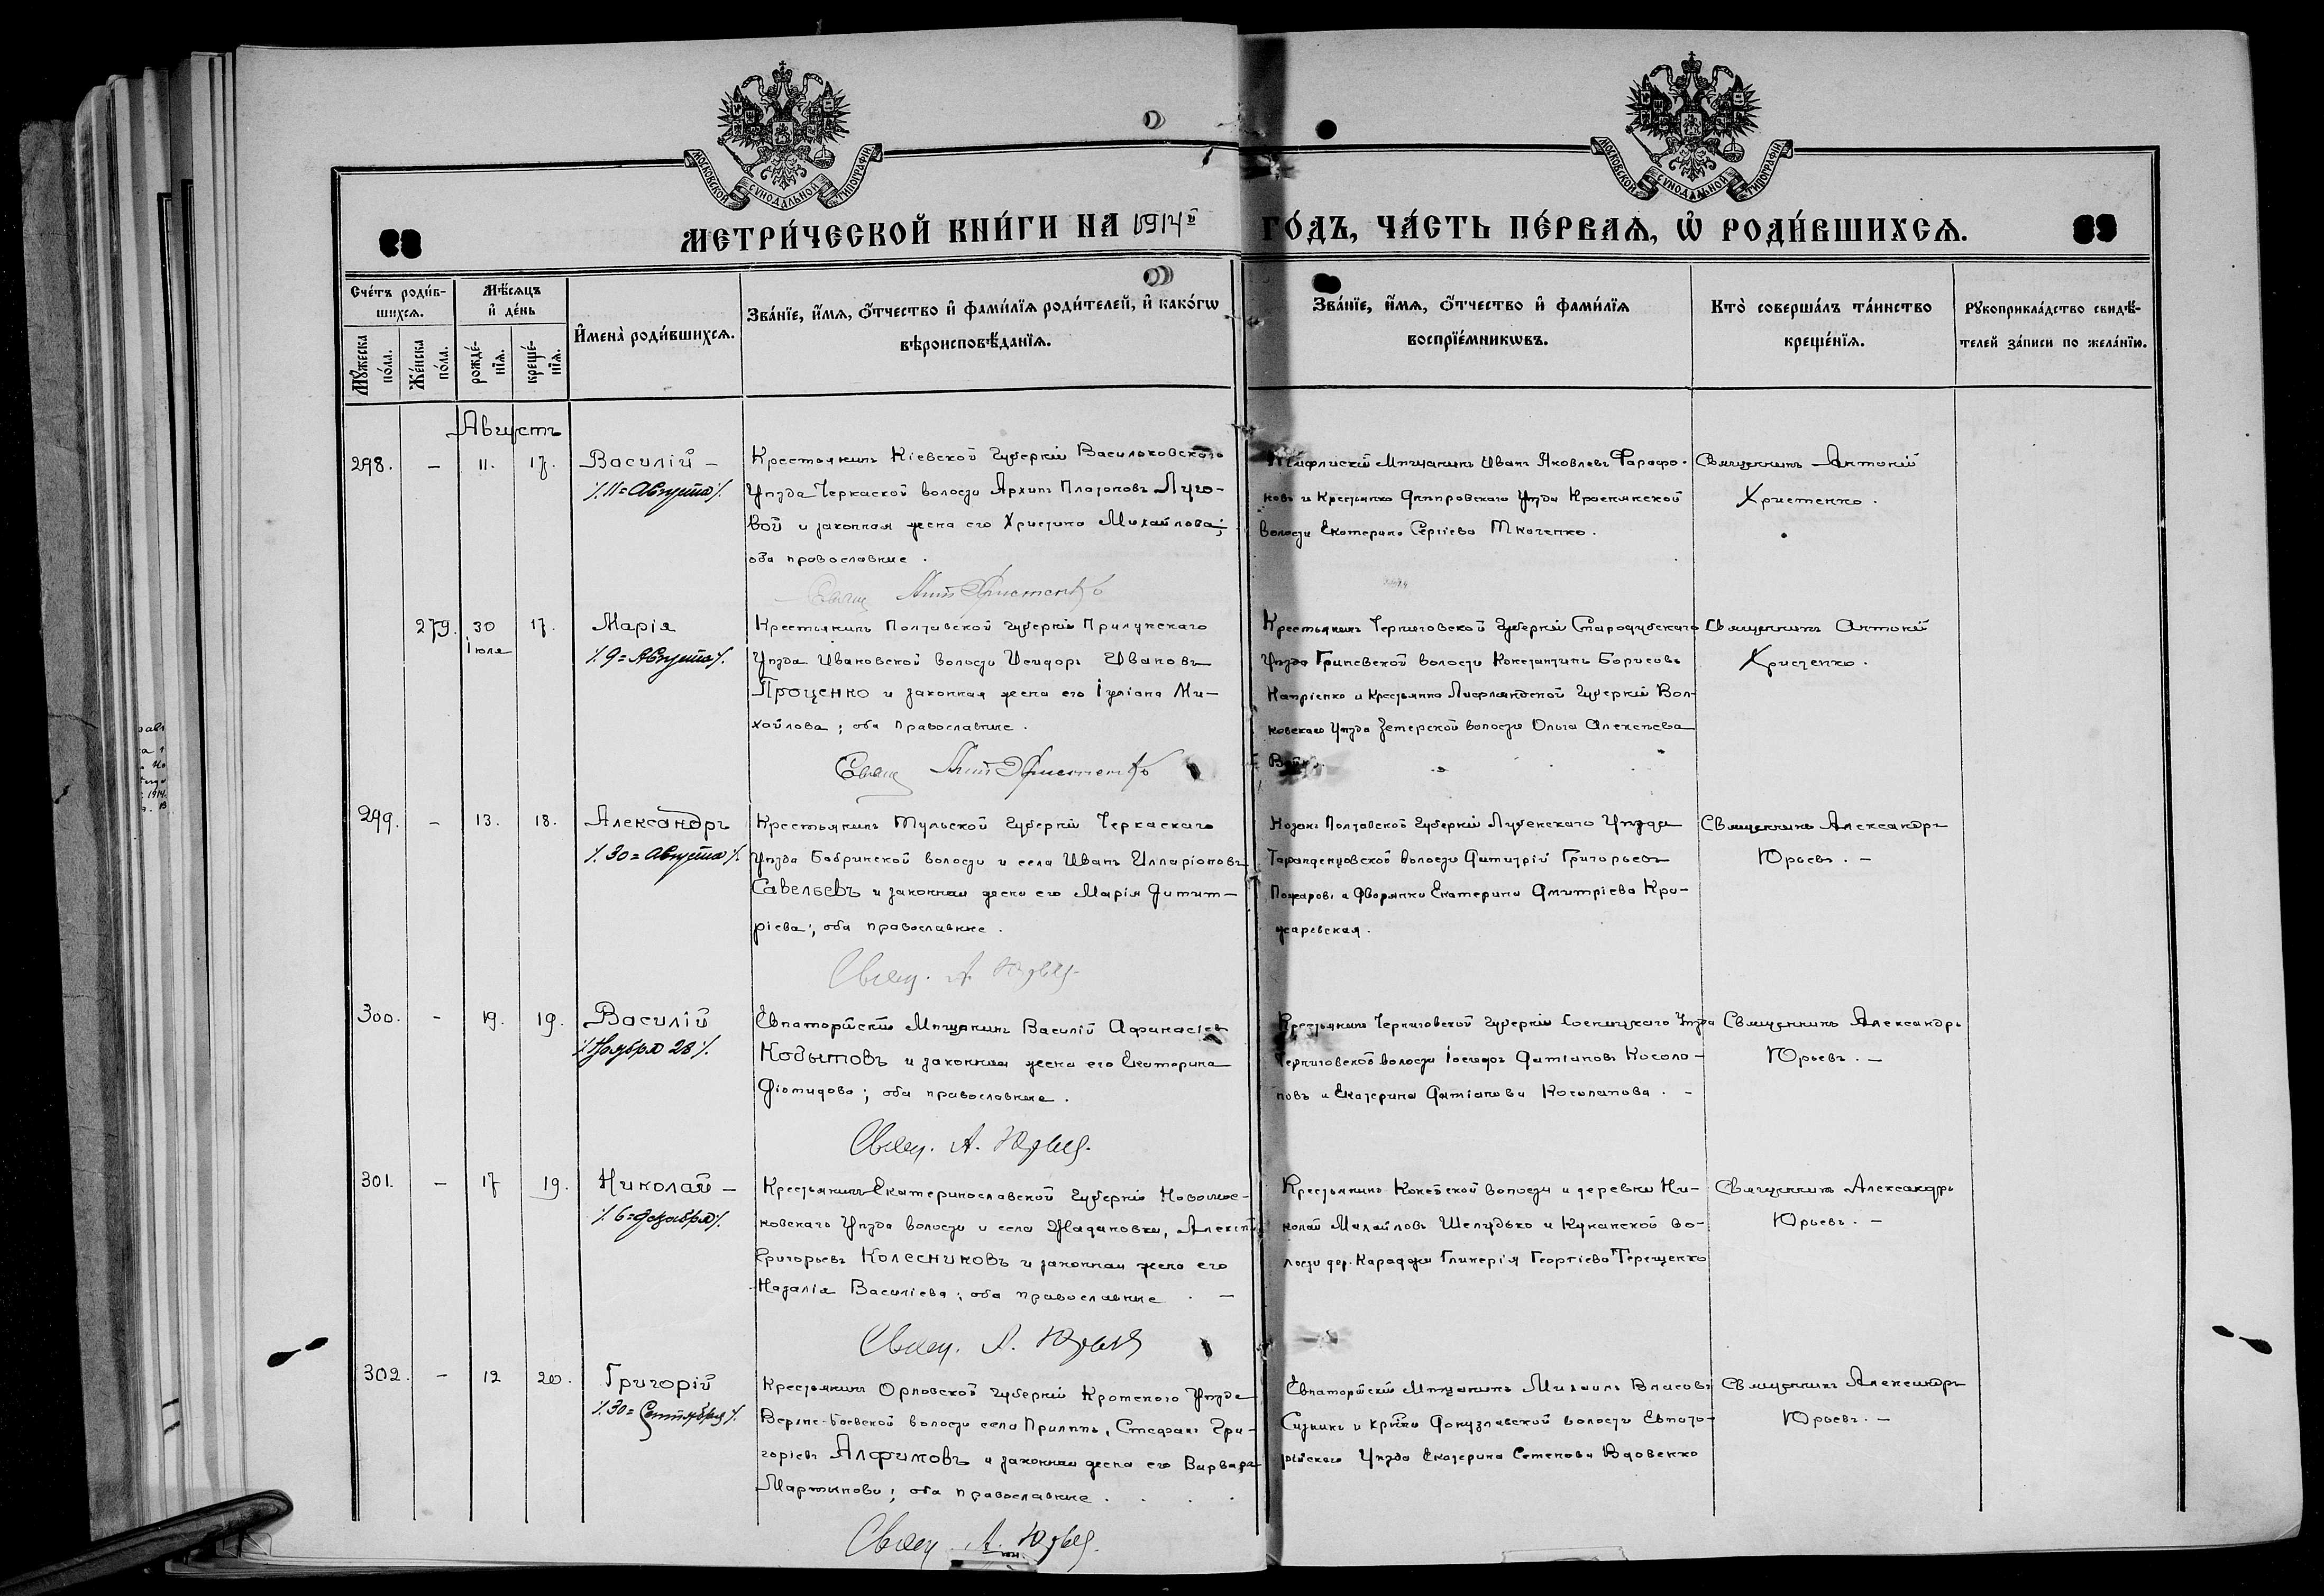 МОСКОВСКОЙ СѴНОДАЛЬНОЙ ТИПОГРАФІИ
МОСКОВСКОЙ СѴНОДАЛЬНОЙ ТИПОГРАФІИ
МЕТРИ́ЧЕСКОЙ КНИ́ГИ НА 1914й ГО́ДЪ, ЧА́СТЬ ПЕ́РВАѦ, Ѽ РОДИ́ВШИХСѦ.
Сче́тъ роди́в-
шихсѧ.
Мѣ́сѧцъ
и҆ де́нь
Мꙋ́жеска по́ла.
Же́нска по́ла.
рожде́-
нїѧ.
креще́-
нїѧ.
И҆мена̀ роди́вшихсѧ.
Зва́нїе, и҆́мѧ, ѻ҆́тчество и҆ фами́лїѧ роди́телей, и҆ како́гѡ
вѣроисповѣ́данїѧ.
Зва́нїе, и҆́мѧ, ѻ҆́тчество и҆ фами́лїѧ
воспрїе́мникѡвъ.
Кто̀ соверша́лъ та́инство
креще́нїѧ.
Рꙋкоприкла́дство свидѣ́-
телей за́писи по жела́нїю.
Августъ
298. – 11. 17. Василій –
/. 11=Августа/.
Крестьянинъ Кіевской губерніи Васильковскаго
Уѣзда Черкаской волости Архипъ Платоновъ Луго-
вой и законная жена его Христина Михайлова;
оба православные.
Свящ Ант Христенко
Тифлискій Мѣщанинъ Иванъ Яковлевъ Фарафо-
новъ и Крестьянка Днѣпровскаго Уѣзда
волости Екатерина Сергіева Ткаченко.
Священникъ Антоній
Христенко.
279. 30 17. Марія
Іюля
/. 9=Августа/.
Крестьянинъ Полтавской губерніи Прилукскаго
Уѣзда Ивановской волости Исидоръ Ивановъ
Проценко и законная жена его Іуліана Ми-
хайлова; оба православные.
Свящ Ант Христенко
Крестьянинъ Черниговской губерніи Стародубскаго
Уѣзда Гриневской волости Константинъ Борисовъ
Напріенко и Крестьянка Лифляндской губерніи Вол-
ковскаго Уѣзда волости Ольга Алексѣева
Священникъ Антоній
Христенко.
299. – 13. 18. Александръ
/. 30=Августа/.
Крестьянинъ Тульской губерніи Черкаскаго
Уѣзда Бабринской волости и села Иванъ Илларіоновъ
Савельевъ и законная жена его Марія Димит-
ріева; оба православные.
Свящ. А. Юрьев
Козакъ Полтавской губерніи Лубенскаго Уѣзда
волости Димитрій Григорьевъ
Пожаровъ и Дворянка Екатерина Дмитріева Кра-
жаревская.
Священникъ Александръ
Юрьевъ. –
300. – 19. 19. Василій
/. Ноября 28/.
Евпаторійскій Мѣщанинъ Василій Афанасіев
Кобытовъ и законная жена его Екатерина
Діомидова; оба православные.
Свящ. А. Юрьев.
Крестьянинъ Черниговской губерніи Сосницкаго Уѣзда
Черниговской волости Даміановъ Косола-
повъ и Екатерина Даміанова Косолапова. –
Священникъ Александръ
Юрьевъ. –
301. – 17 19. Николай –
/. 6=Декабря/.
Крестьянинъ Екатеринославской губерніи Новомос-
ковскаго Уѣзда волости и села Жадановки, Алексѣй
Григорьевъ Колесниковъ и законная жена его
Наталія Василіева; оба православные. –
Свящ. А. Юрьев
Крестьянинъ волости и деревни Ни-
колай Михайловъ Шелудько и Куканской во-
лости дер. Караджи Гликерія Георгіева Терещенко
Священникъ Александръ
Юрьевъ. –
302. – 12 20. Григорій
/. 30=Сентября/.
Крестьянинъ Орловской губерніи Кромского Уѣзда
волости села Прилѣпъ, Стефанъ Гри-
горіевъ Алфимовъ и законная жена его Варвара
Мартынова; оба православные.
Свящ. А. Юрьев.
Евпаторійскій Мѣщанинъ Михаилъ Власовъ
и Донузлавской волости Евпато-
рійскаго Уѣзда Екатерина Семенова Вдовенко
Священникъ Александръ
Юрьевъ. –